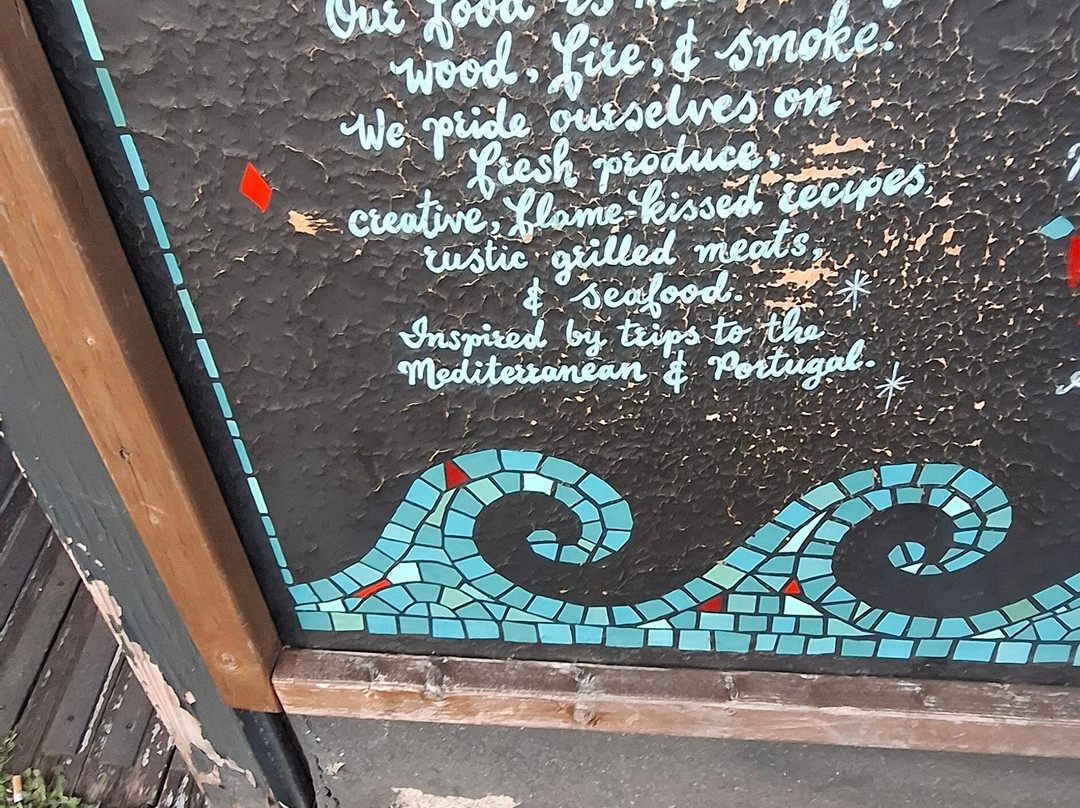 Our food is
wood, fire, & smoke.
We pride ourselves on
fresh produce,
creative, flame-kissed recipes,
rustic grilled meats,
& seafood.
Inspired by trips to the
Mediterranean & Portugal.